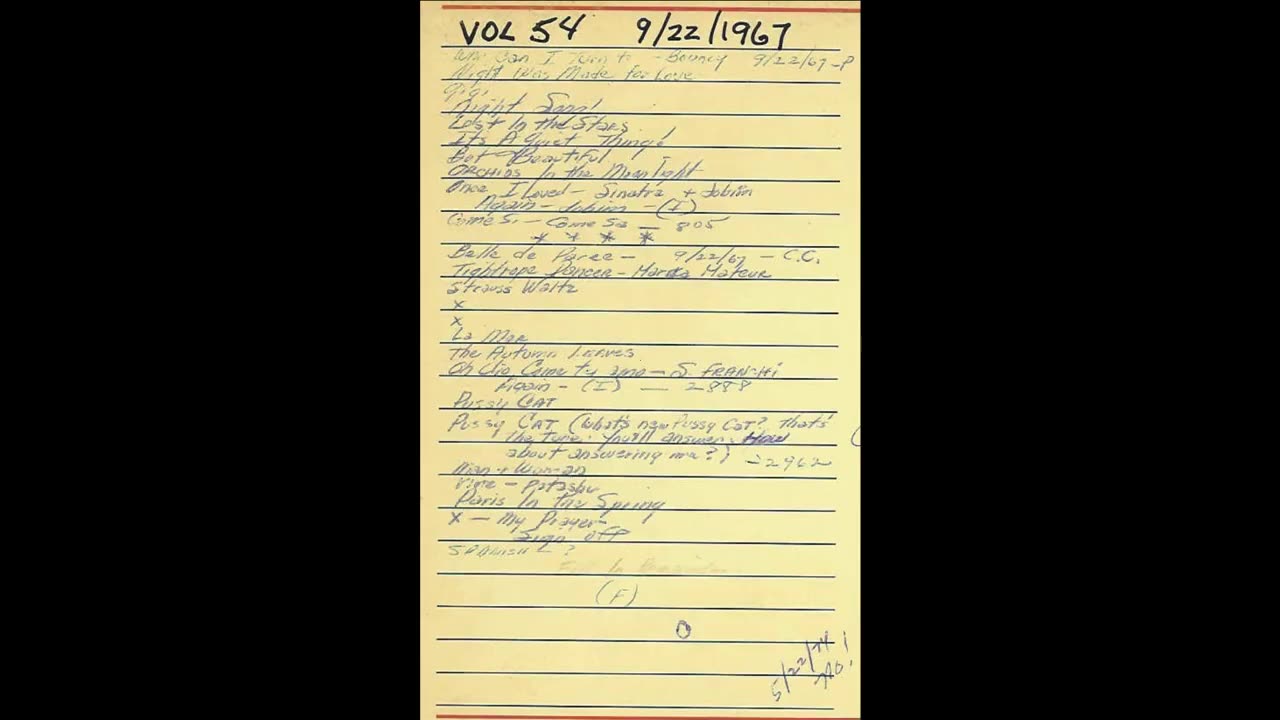 VOL 54 9/22/1967
Who Can I Turn to - Bouncy 9/22/67 - P
Night Was Made for Love
Gigi
Night Song!
Lost In the Stars
Its A Quiet Thing!
But Beautiful
ORCHIDS In the Moonlight
Once I Loved - Sinatra + Jobim
Again - Jobim - (I)
Come Si - Come Sa - 805
* * * *
Belle de Paree - 9/22/67 - C.C.
Tightrope Dancer -
Strauss Waltz
x
x
La Mer
The Autumn Leaves
Oh Dio Come ti amo - S. FRANCHI
Again - (I) - 2888
Pussy CAT
Pussy CAT (What's new Pussy Cat? That's
the tune. You'll answer. How
about answering me?) - 2962
Man + Woman
Paris In the Spring
x - My Prayer -
Sign off
SPANISH - ?
(F)
O
5/22/74
No!